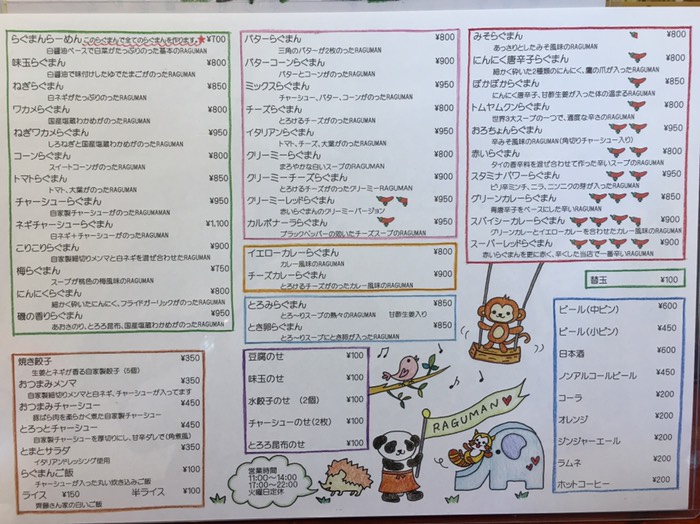 らぐまんらーめん このらぐまんで全てのらぐまんを作ります。★ ¥700
白醤油ベースで白菜がたっぷりのった基本のRAGUMAN
味玉らぐまん ¥800
白醤油で味付けしたゆでたまごがのったRAGUMAN
ねぎらぐまん ¥850
白ネギがたっぷりのったRAGUMAN
ワカメらぐまん ¥800
国産塩蔵わかめがのったRAGUMAN
ねぎワカメらぐまん ¥950
しろねぎと国産塩蔵わかめがのったRAGUMAN
コーンらぐまん ¥800
スイートコーンがのったRAGUMAN
トマトらぐまん ¥850
トマト、大葉がのったRAGUMAN
チャーシューらぐまん ¥950
自家製チャーシューがのったRAGUMANAN
ネギチャーシューらぐまん ¥1,100
白ネギ+チャーシューがのったRAGUMAN
こりこりらぐまん ¥900
自家製細切りメンマと白ネギを混ぜ合わせたRAGUMAN
梅らぐまん ¥750
スープが桃色の梅風味のRAGUMAN
にんにくらぐまん ¥800
細かく砕いたにんにく、フライドガーリックがのったRAGUMAN
磯の香りらぐまん ¥950
あおさのり、とろろ昆布、国産塩蔵わかめがのったRAGUMAN
バターらぐまん ¥800
三角のバターが2枚のったRAGUMAN
バターコーンらぐまん ¥900
バターとコーンがのったRAGUMAN
ミックスらぐまん ¥950
チャーシュー、バター、コーンがのったRAGUMAN
チーズらぐまん ¥800
とろけるチーズがのったRAGUMAN
イタリアンらぐまん ¥950
トマト、チーズ、大葉がのったRAGUMAN
クリーミーらぐまん ¥800
まろやかな白いスープのRAGUMAN
クリーミーチーズらぐまん ¥900
とろけるチーズがのったクリーミーRAGUMAN
クリーミーレッドらぐまん ¥850
赤いらぐまんのクリーミーバージョン
カルボナーラらぐまん ¥950
ブラックペッパーの効いたチーズスープのRAGUMAN
イエローカレーらぐまん ¥800
カレー風味のRAGUMAN
チーズカレーらぐまん ¥900
とろけるチーズがのったカレー風味のRAGUMAN
とろみらぐまん ¥850
とろ～りスープの熱々のRAGUMAN 甘酢生姜入り
とき卵らぐまん ¥850
とろ～りスープにとき卵が入ったRAGUMAN
みそらぐまん ¥800
あっさりとしたみそ風味のRAGUMAN
にんにく唐辛子らぐまん ¥800
細かく砕いた2種類のにんにく、鷹の爪が入ったRAGUMAN
ぽかぽからぐまん ¥850
にんにく唐辛子、甘酢生姜が入った体の温まるRAGUMAN
トムヤムクンらぐまん ¥800
世界3大スープの一つで、適度な辛さのRAGUMAN
おろちょんらぐまん ¥950
辛みそ風味のRAGUMAN(角切りチャーシュー入り)
赤いらぐまん ¥800
タイの香辛料を混ぜ合わせて作った辛いスープのRAGUMAN
スタミナパワーらぐまん ¥950
ピリ辛ミンチ、ニラ、ニンニクの芽が入ったRAGUMAN
グリーンカレーらぐまん ¥850
青唐辛子をベースにした辛いRAGUMAN
スパイシーカレーらぐまん ¥900
グリーンカレーとイエローカレーを合わせたカレー風味のRAGUMAN
スーパーレッドらぐまん ¥900
赤いらぐまんを更に赤く、辛くした当店で一番辛いRAGUMAN
替玉 ¥100
焼き餃子 ¥350
生姜とネギが香る自家製餃子(5個)
おつまみメンマ ¥350
自家製細切りメンマと白ネギ、チャーシューが入ってます
おつまみチャーシュー ¥450
豚ばら肉を柔らかく煮た自家製チャーシュー
とろっとチャーシュー ¥450
自家製チャーシューを厚切りにし、甘辛ダレで(角煮風)
とまとサラダ ¥350
イタリアンドレッシング使用
らぐまんご飯 ¥100
チャーシューが入った丸い炊き込みご飯
ライス ¥150 半ライス ¥100
齊藤さん家の白いご飯
豆腐のせ ¥100
味玉のせ ¥100
水餃子のせ (2個) ¥100
チャーシューのせ(2枚) ¥100
とろろ昆布のせ ¥100
営業時間
11:00～14:00
17:00～22:00
火曜日定休
RAGUMAN
ビール(中ビン) ¥600
ビール(小ビン) ¥450
日本酒 ¥400
ノンアルコールビール ¥450
コーラ ¥200
オレンジ ¥200
ジンジャーエール ¥200
ラムネ ¥200
ホットコーヒー ¥200